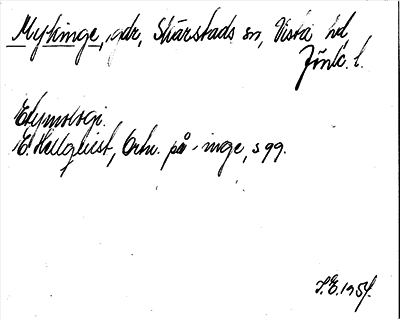 Mytinge, gdr, Skärstads sn, Vista hd,
Jönk. l.
Etymologi.
E. Hellquist, Ortn. på -inge, s 99.
I.E. 1954.